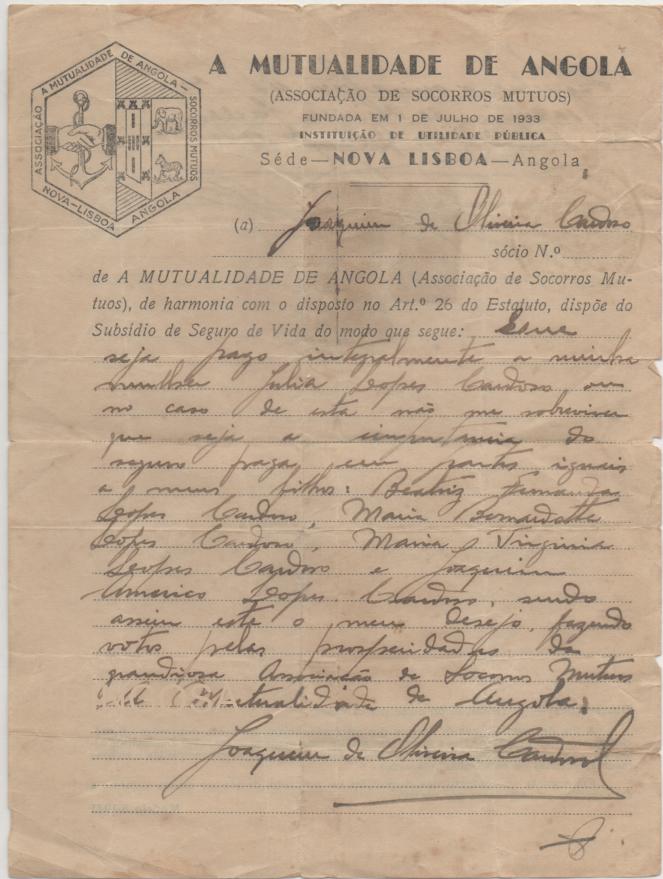 ASSOCIAÇÃO A MUTUALIDADE DE ANGOLA — SOCORROS MUTUOS
NOVA-LISBOA ANGOLA
A MUTUALIDADE DE ANGOLA
(ASSOCIAÇÃO DE SOCORROS MUTUOS)
FUNDADA EM 1 DE JULHO DE 1933
INSTITUIÇÃO DE UTILIDADE PÚBLICA
Séde—NOVA LISBOA—Angola
(a) Joaquim de Oliveira Cardoso
sócio N.º
de A MUTUALIDADE DE ANGOLA (Associação de Socorros Mu-
tuos), de harmonia com o disposto no Art.º 26 do Estatuto, dispõe do
Subsídio de Seguro de Vida do modo que segue:
seja pago integralmente a minha
mulher Julia Lopes Cardoso, ou
no caso de esta não me sobreviver
que seja a importancia do
seguro paga em partes iguais
a meus filhos: Beatriz Fernanda
Lopes Cardoso, Maria Bernardette
Lopes Cardoso, Maria Virginia
Lopes Cardoso e Joaquim
Americo Lopes Cardoso, sendo
assim este o meu desejo, fazendo
votos pelas prosperidades da
grandiosa Associação de Socorros Mutuos
Mutualidade de Angola.
Joaquim de Oliveira Cardoso